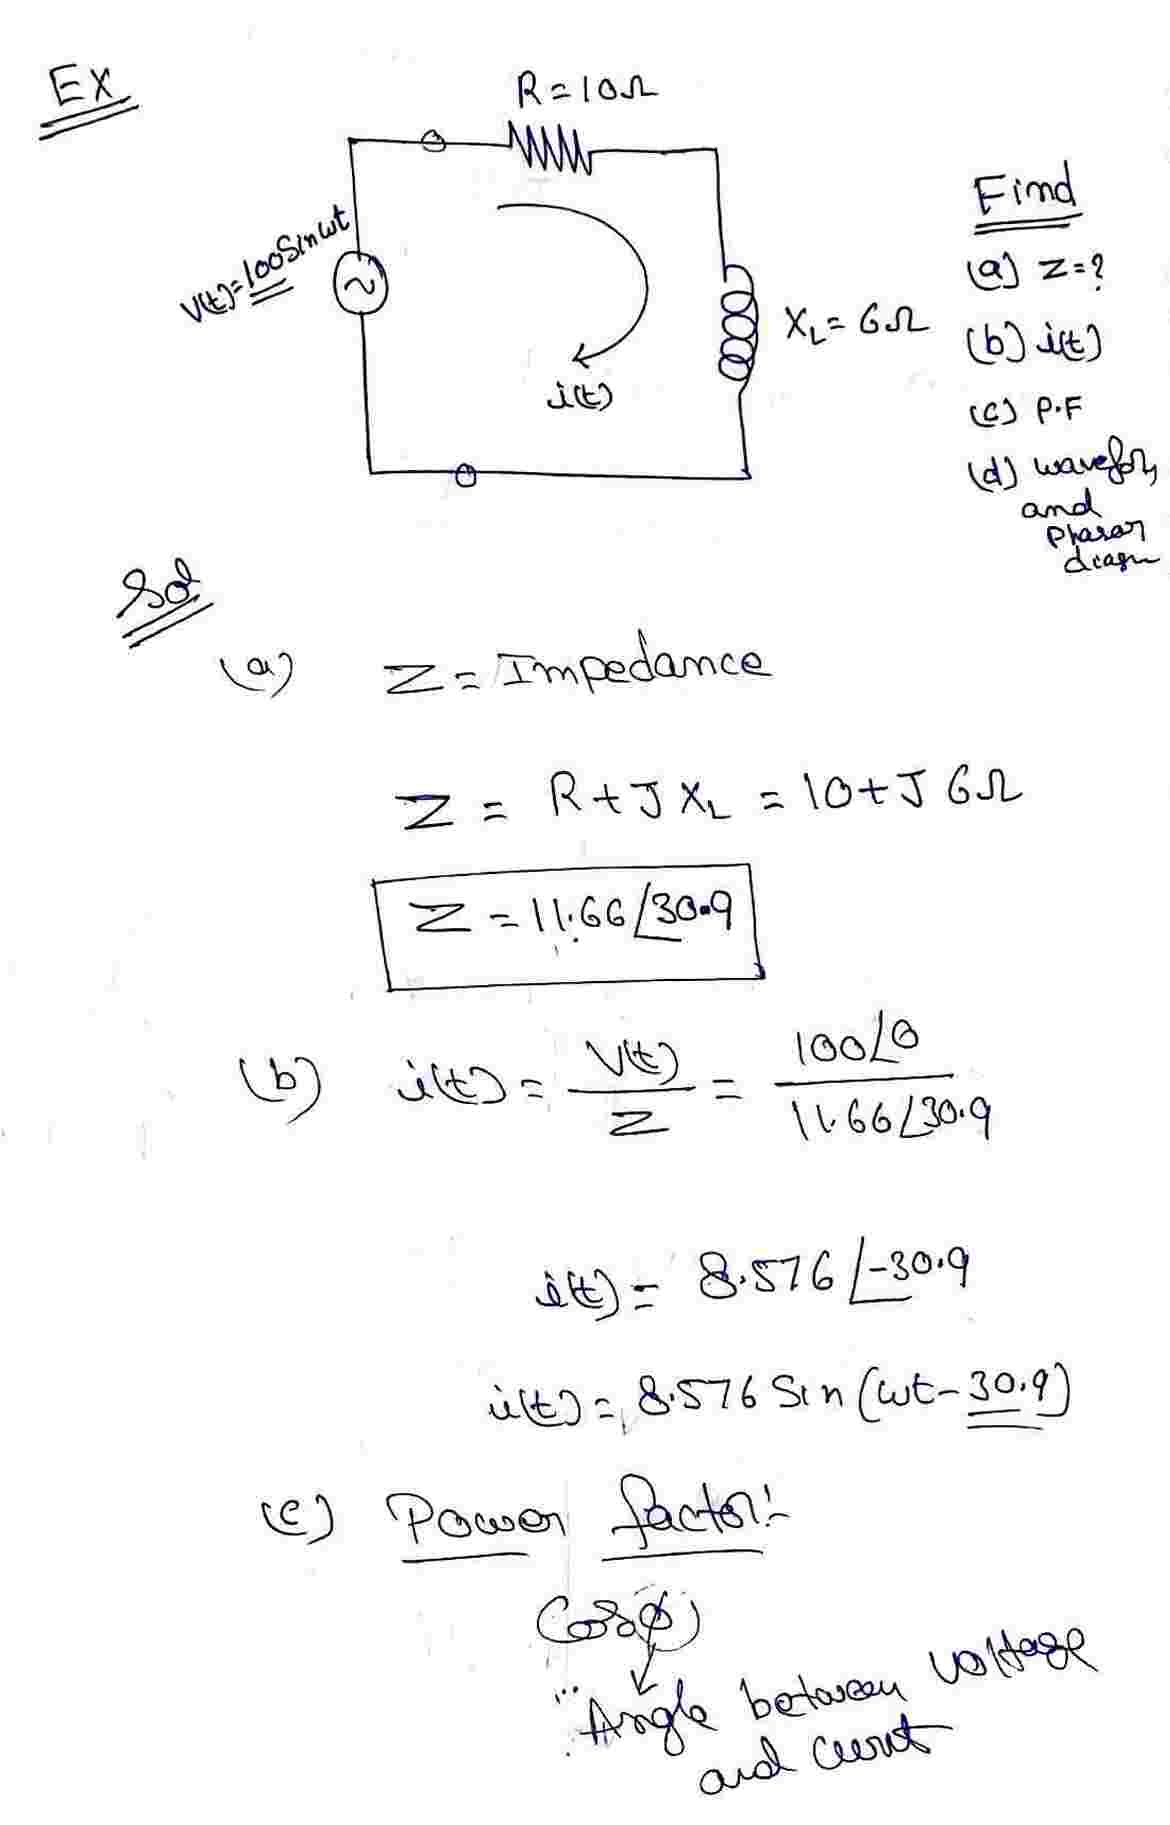 Ex
R = 10Ω
V(t) = 100 Sin ωt
i(t)
X_L = 6Ω
Find
(a) Z = ?
(b) i(t)
(c) P.F
(d) wavefor
and
Phasor
diagm
Sol
(a) Z = Impedance
Z = R + J X_L = 10 + J 6Ω
Z = 11.66∠30.9
(b) i(t) = V(t)/Z = 100∠0 / 11.66∠30.9
i(t) = 8.576∠-30.9
i(t) = 8.576 Sin (ωt - 30.9)
(c) Power factor:-
Cosϕ
Angle between voltage
and curnt